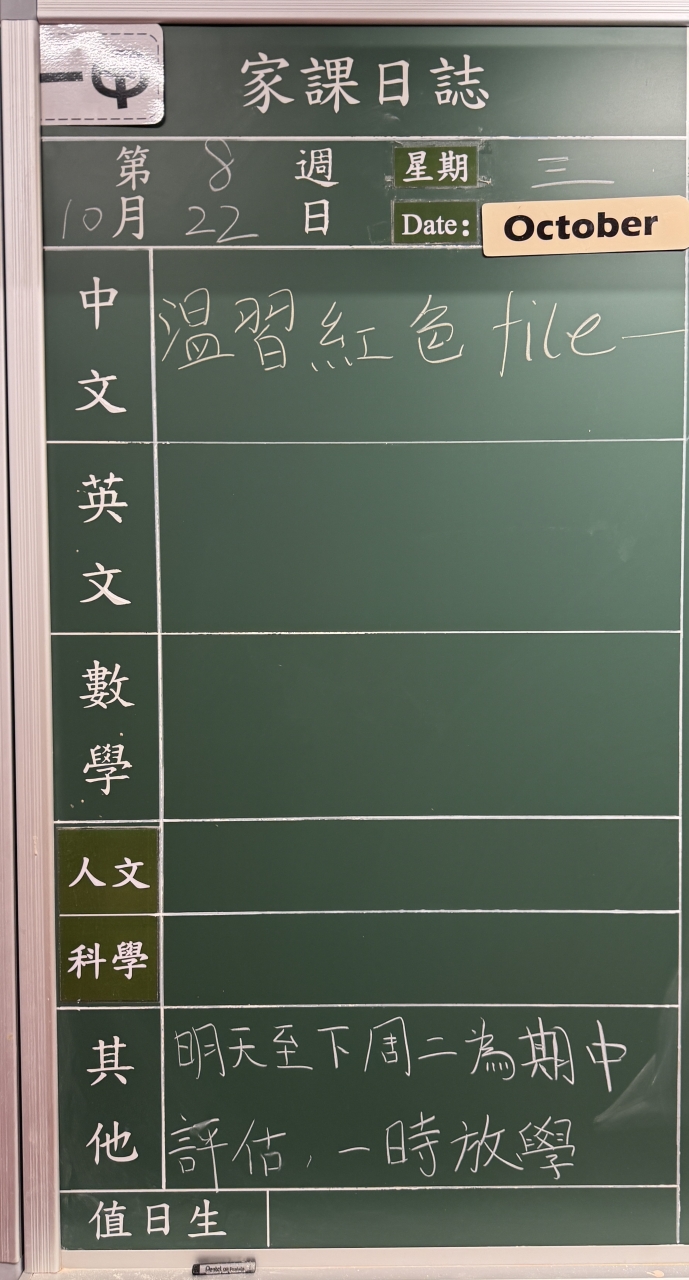 一甲
家課日誌
第 8 週 星期 三
10月 22 日 Date: October
中文 温習紅色 file—
英文
數學
人文
科學
其他 明天至下周二為期中
評估，一時放學
值日生
Pentel